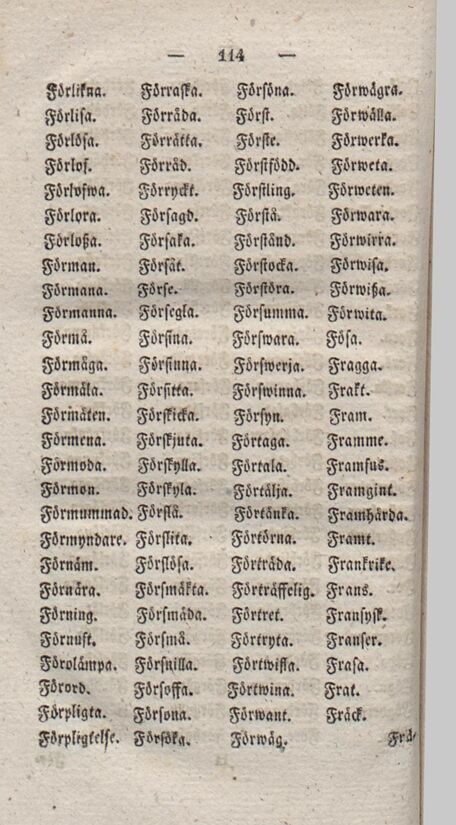 — 114 —
Förlikna.
Förlisa.
Förlösa.
Förlof.
Förlofwa.
Förlora.
Förloßa.
Förman.
Förmana.
Förmanna.
Förmå.
Förmåga.
Förmäla.
Förmäten.
Förmena.
Förmoda.
Förmon.
Förmummad.
Förmyndare.
Förnäm.
Förnära.
Förning.
Förnuft.
Förolämpa.
Förord.
Förpligta.
Förpligtelse.
Förraska.
Förråda.
Förrätta.
Förråd.
Förryckt.
Försagd.
Försaka.
Försåt.
Förse.
Försegla.
Försina.
Försinna.
Försitta.
Förskicka.
Förskjuta.
Förskylla.
Förskyla.
Förslå.
Förslita.
Förslösa.
Försmäkta.
Försmäda.
Försmå.
Försnilla.
Försoffa.
Försona.
Försöka.
Försöna.
Först.
Förste.
Förstfödd.
Förstling.
Förstå.
Förstånd.
Förstocka.
Förstöra.
Försumma.
Förswara.
Förswerja.
Förswinna.
Försyn.
Förtaga.
Förtala.
Förtälja.
Förtänka.
Förtörna.
Förträda.
Förträffelig.
Förtret.
Förtryta.
Förtwifla.
Förtwina.
Förwant.
Förwäg.
Förwägra.
Förwälla.
Förwerka.
Förweta.
Förweten.
Förwara.
Förwirra.
Förwisa.
Förwißa.
Förwita.
Fösa.
Fragga.
Frakt.
Fram.
Framme.
Framfus.
Framgint.
Framhärda.
Framt.
Frankrike.
Frans.
Fransysk.
Franser.
Frasa.
Frat.
Fräck.
Frä-